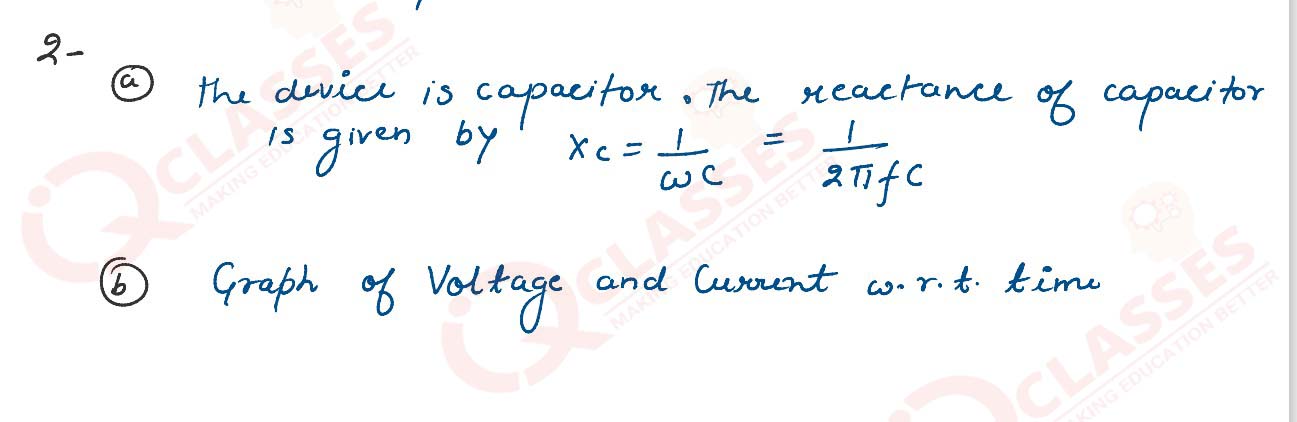 2-
ⓐ the device is capacitor. The reactance of capacitor
is given by Xc = 1/ωC = 1/2πfC
ⓑ Graph of Voltage and Current w.r.t. time
CLASSES
MAKING EDUCATION BETTER
CLASSES
MAKING EDUCATION BETTER
CLASSES
MAKING EDUCATION BETTER